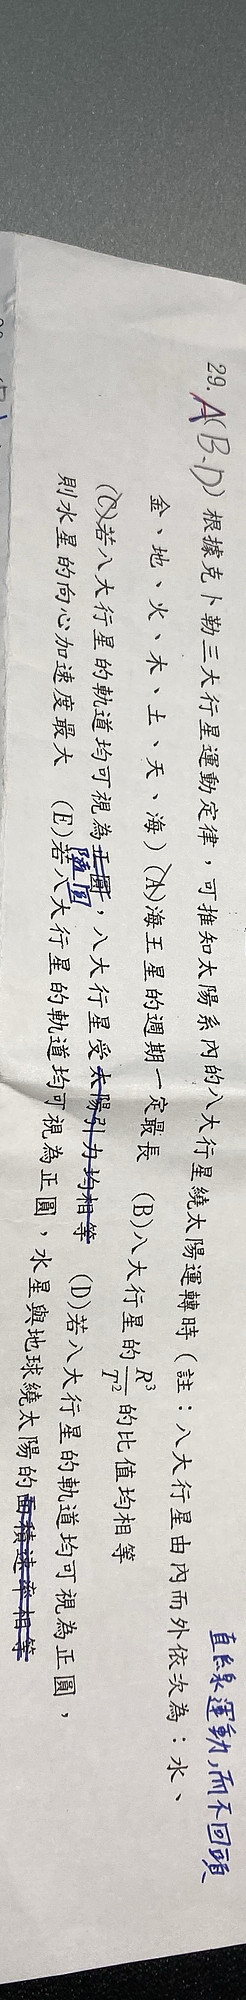 直線運動,而不回頭
29. A(B.D) 根據克卜勒三大行星運動定律，可推知太陽系內的八大行星繞太陽運轉時（註：八大行星由內而外依次為：水、
金、地、火、木、土、天、海）(A)海王星的週期一定最長 (B)八大行星的 R³/T² 的比值均相等
(C)若八大行星的軌道均可視為正圓，八大行星受太陽引力均相等 (D)若八大行星的軌道均可視為正圓，
橢圓
則水星的向心加速度最大 (E)若八大行星的軌道均可視為正圓，水星與地球繞太陽的面積速率相等